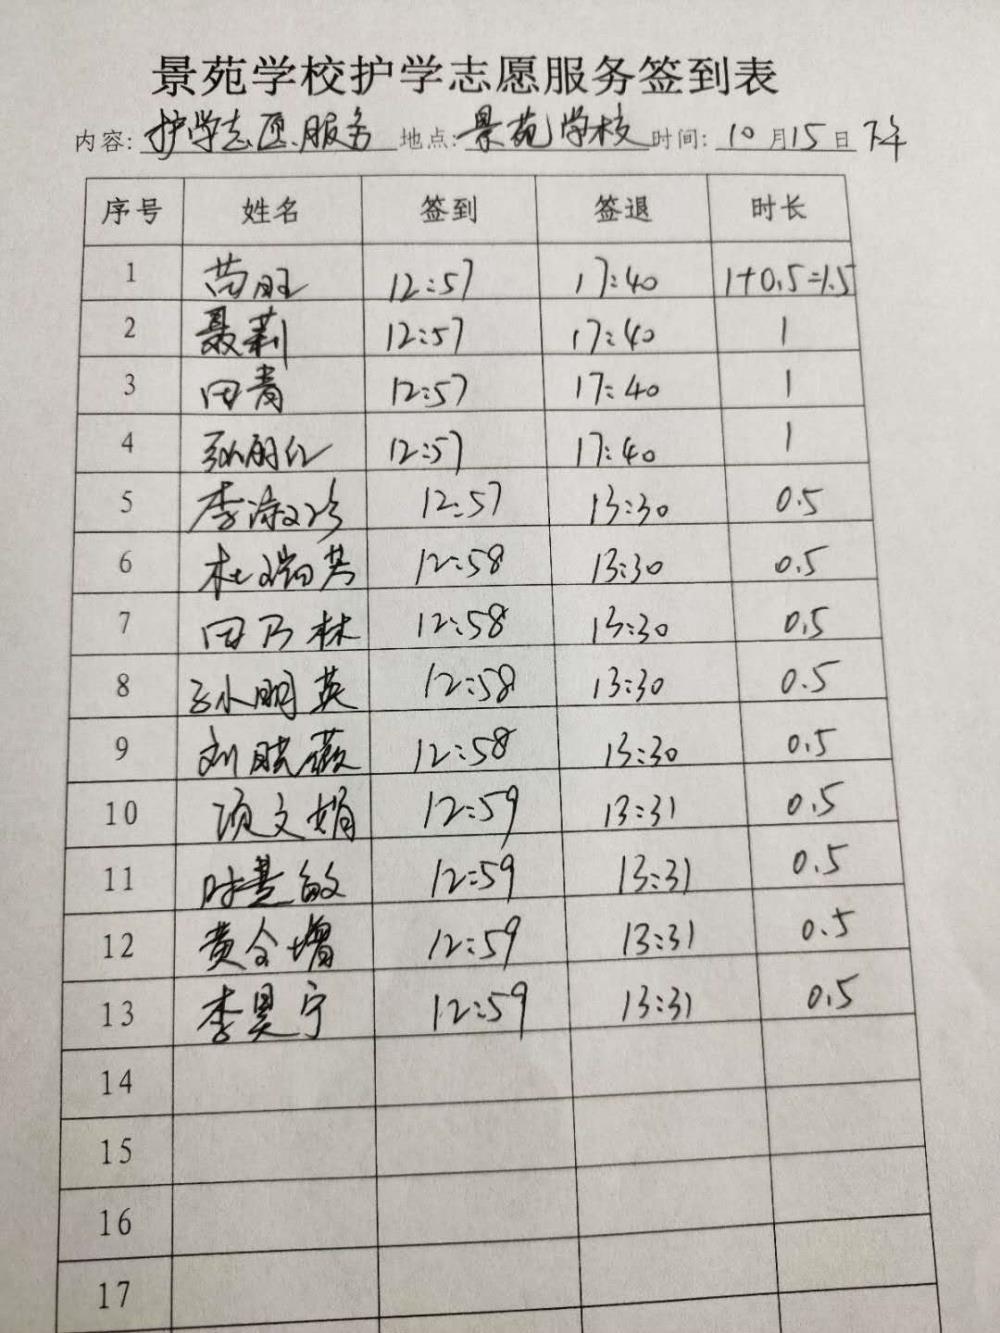 景苑学校护学志愿服务签到表
内容: 护学志愿服务 地点: 景苑学校 时间: 10月15日 下午
序号 姓名 签到 签退 时长
1 苗旺 12:57 17:40 1+0.5=1.5
2 聂莉 12:57 17:40 1
3 田青 12:57 17:40 1
4 12:57 17:40 1
5 李淑珍 12:57 13:30 0.5
6 杜瑞芳 12:58 13:30 0.5
7 田乃林 12:58 13:30 0.5
8 孙明英 12:58 13:30 0.5
9 刘晓薇 12:58 13:30 0.5
10 项文娟 12:59 13:31 0.5
11 12:59 13:31 0.5
12 黄全增 12:59 13:31 0.5
13 李昊宁 12:59 13:31 0.5
14
15
16
17